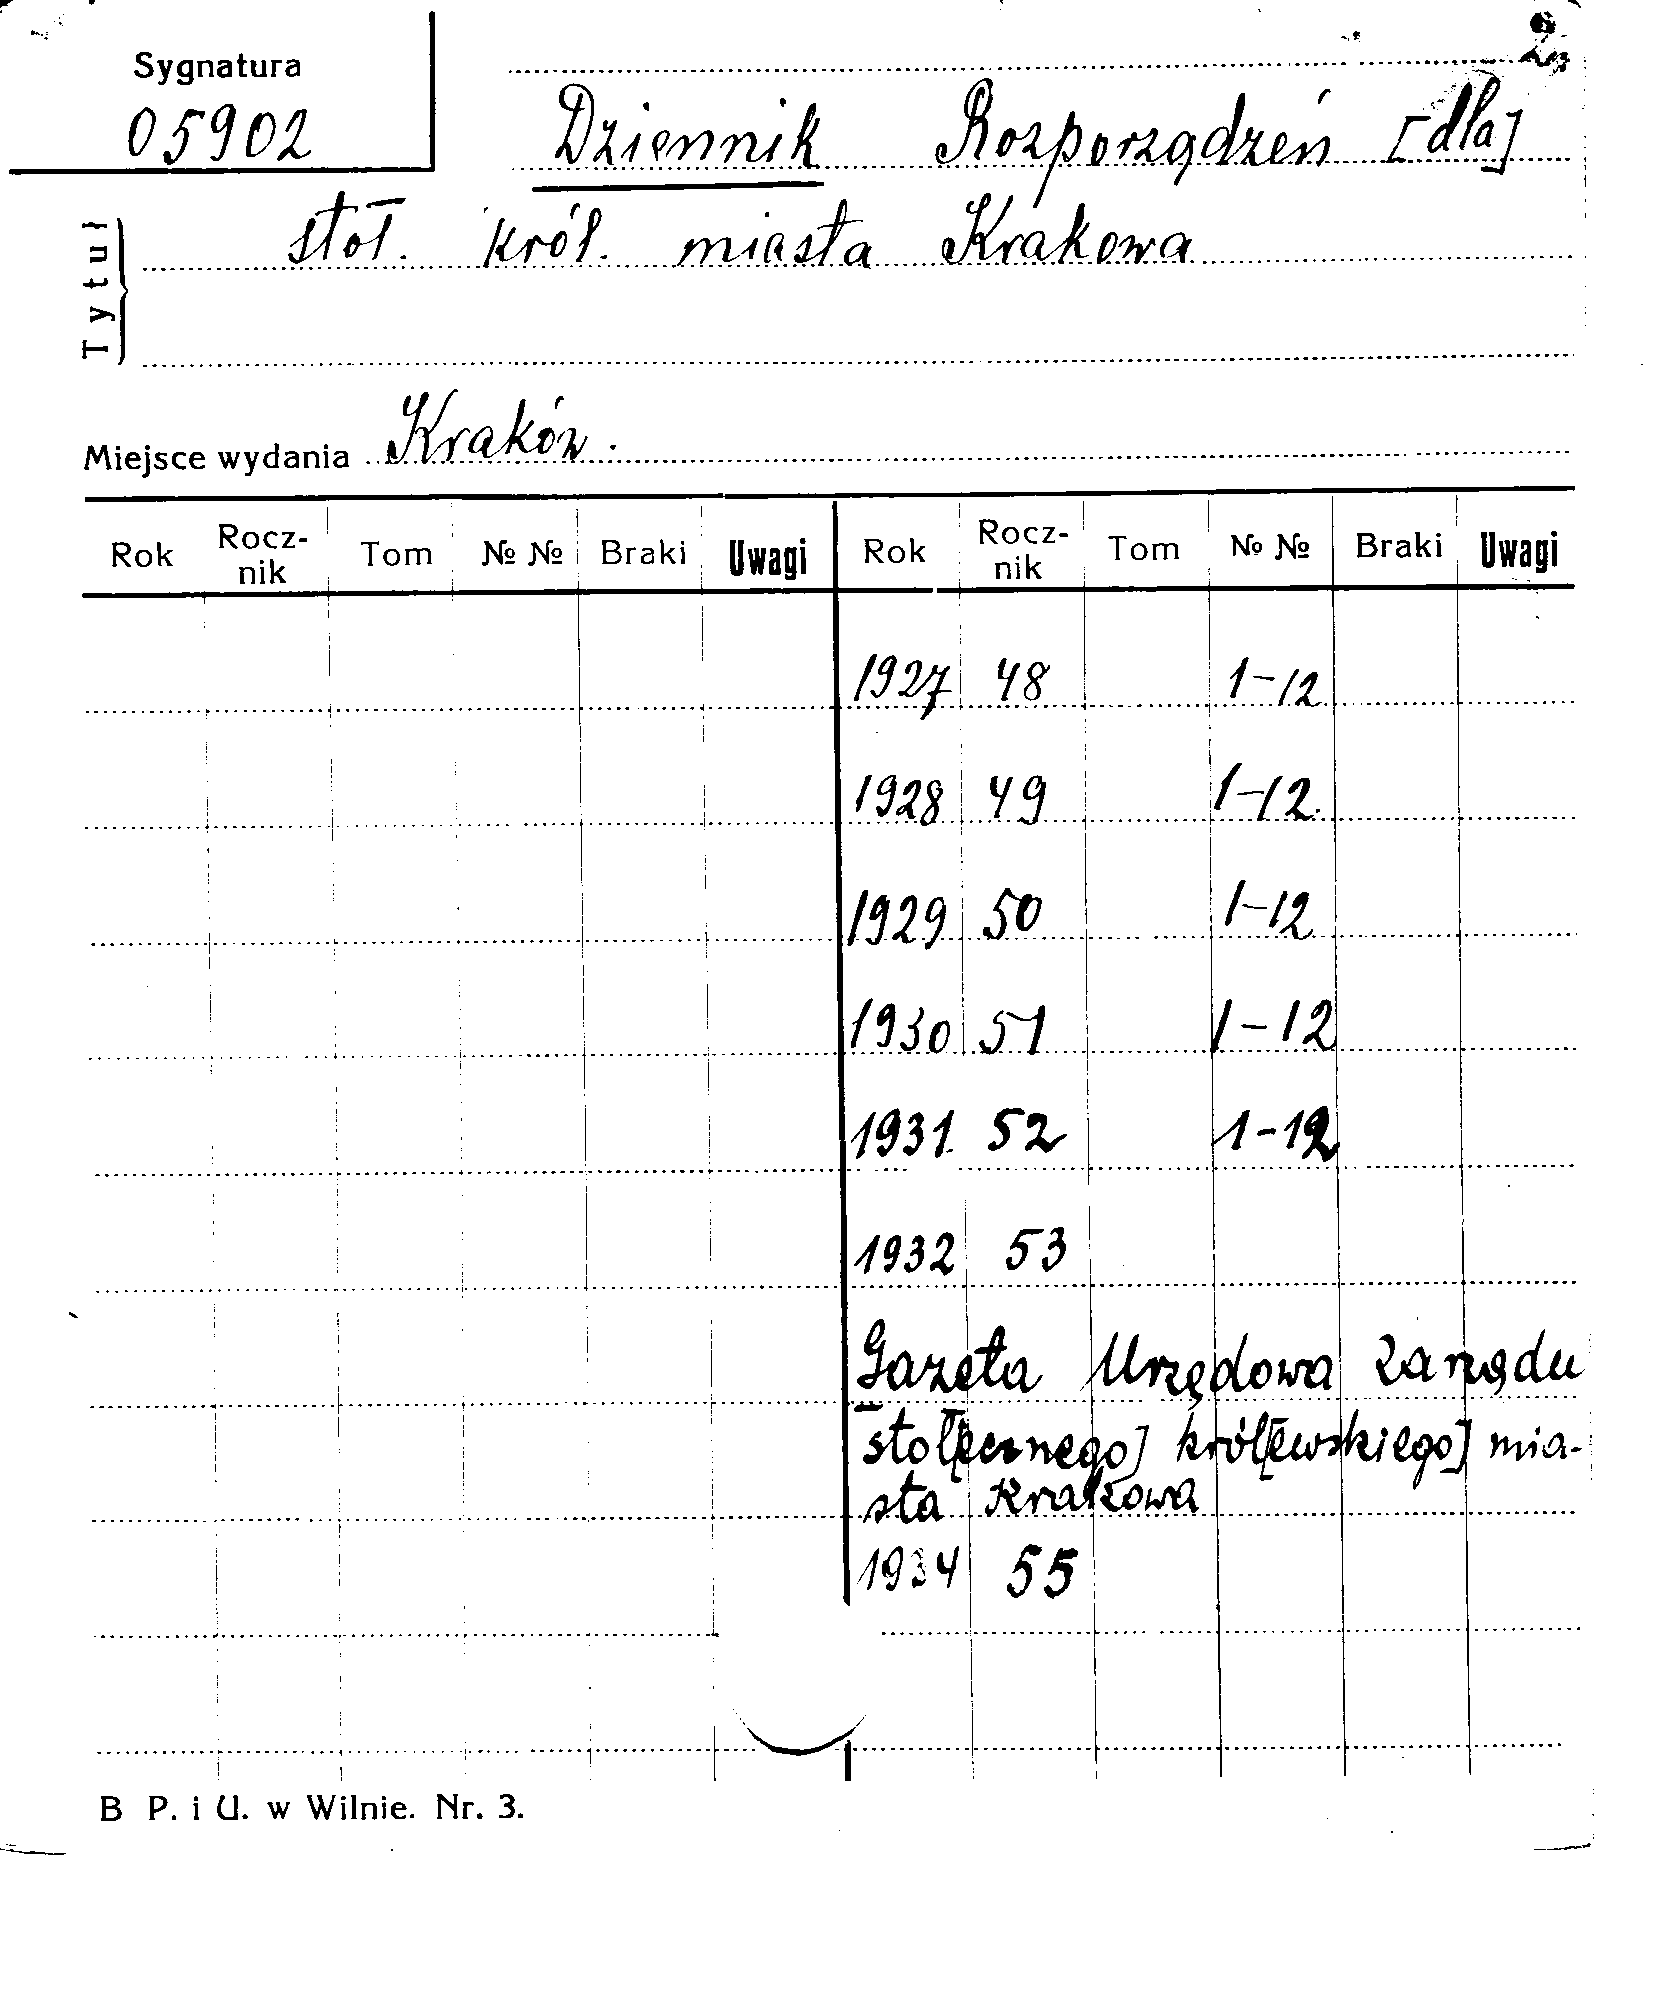 2.
Sygnatura
05902
Dziennik Rozporządzeń [dla]
stoł. król. miasta Krakowa
Tytuł
Miejsce wydania Kraków.
Rok Rocz-nik Tom № № Braki Uwagi Rok Rocz-nik Tom № № Braki Uwagi
1927 48 1-12
1928 49 1-12.
1929 50 1-12
1930 51 1-12
1931. 52 1-12
1932 53
Gazeta Urzędowa Zarządu
stoł[ecznego] król[ewskiego] mia-
sta Krakowa
1934 55
B P. i U. w Wilnie. Nr. 3.